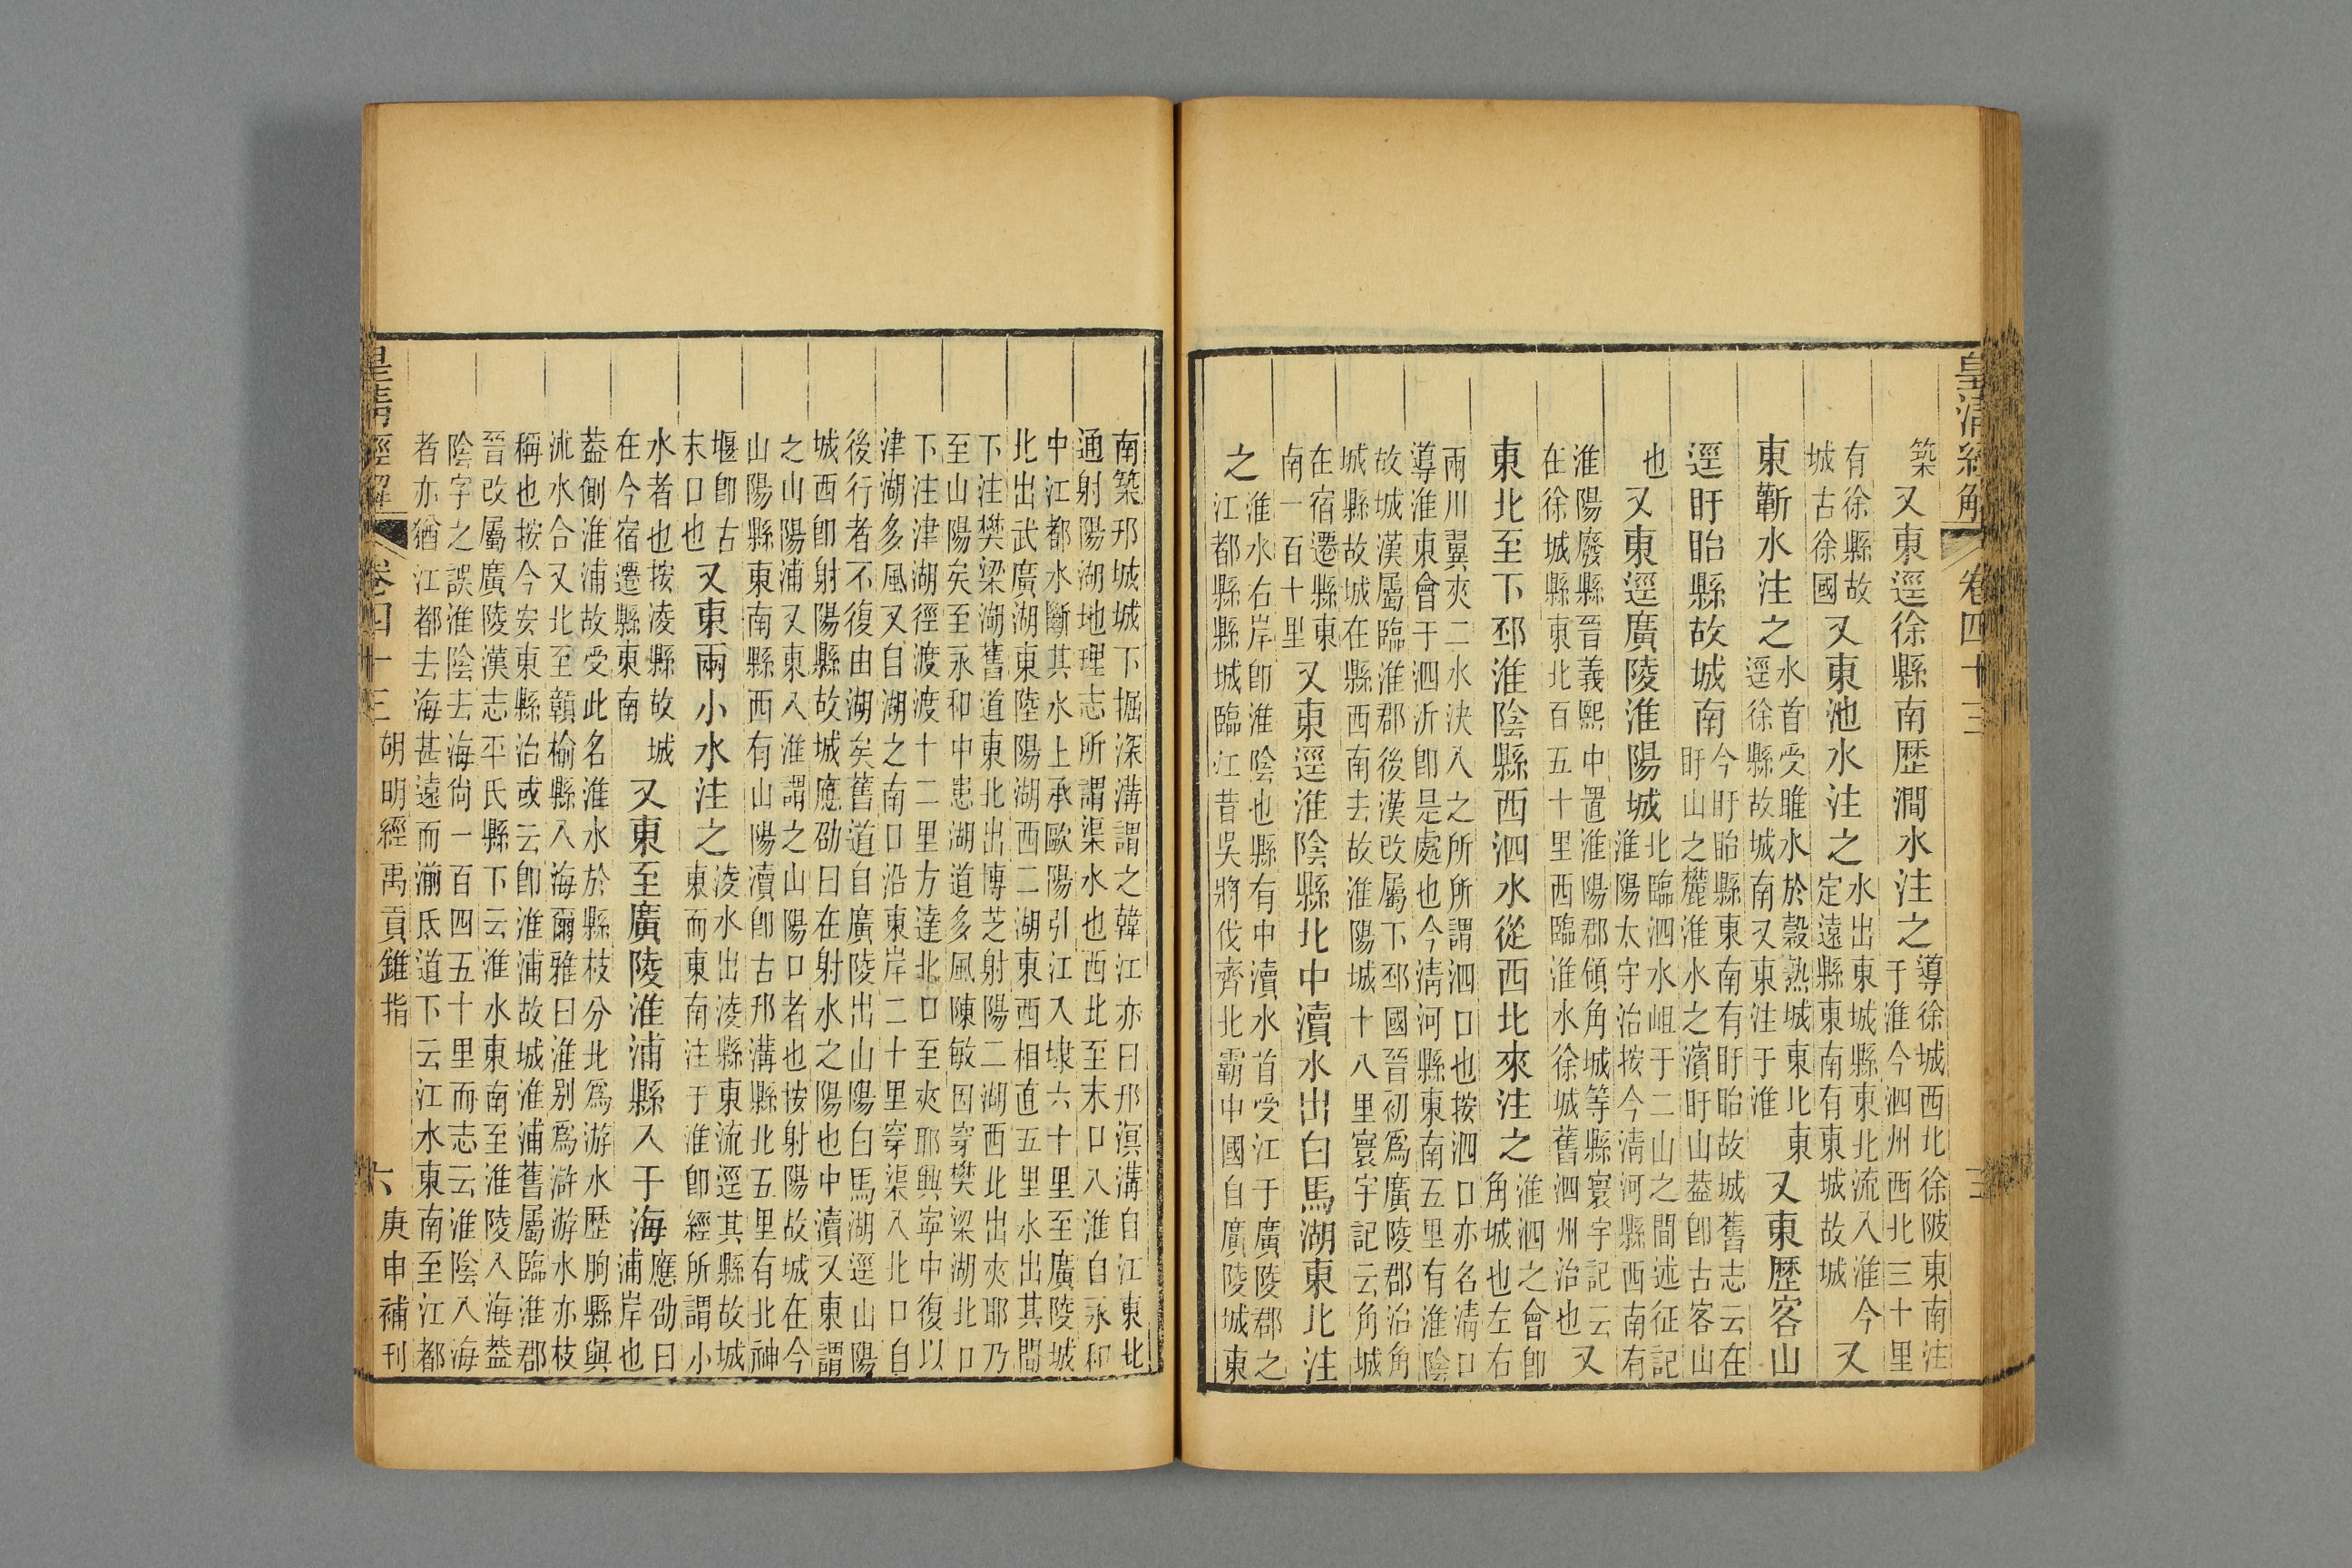 皇清經解 卷四十三
築
又東逕徐縣南歷澗水注之
導徐城西北徐陂東南注
于淮今泗州西北三十里
有徐縣故
城古徐國
又東池水注之
水出東城縣東北流入淮今
定遠縣東南有東城故城
又
東蘄水注之
水首受睢水於穀熟城東北東
逕徐縣故城南又東注于淮
又東歷客山
逕盱眙縣故城南
今盱眙縣東南有盱眙故城舊志云在
盱山之麓淮水之濱盱山蓋卽古客山
也
又東逕廣陵淮陽城
北臨泗水岨于二山之間述征記
淮陽太守治按今清河縣西南有
淮陽廢縣晉義熙中置淮陽郡領角城等縣寰宇記云
在徐城縣東北百五十里西臨淮水徐城舊泗州治也
又
東北至下邳淮陰縣西泗水從西北來注之
淮泗之會卽
角城也左右
兩川翼夾二水決入之所所謂泗口也按泗口亦名清口
導淮東會于泗沂卽是處也今清河縣東南五里有淮陰
故城漢屬臨淮郡後漢改屬下邳國晉初爲廣陵郡治角
城縣故城在縣西南去故淮陽城十八里寰宇記云角城
在宿遷縣東
南一百十里
又東逕淮陰縣北中瀆水出白馬湖東北注
之
淮水右岸卽淮陰也縣有中瀆水首受江于廣陵郡之
江都縣縣城臨江昔吳將伐齊北霸中國自廣陵城東
南築邗城城下掘深溝謂之韓江亦曰邗溟溝自江東北
通射陽湖地理志所謂渠水也西北至末口入淮自永和
中江都水斷其水上承歐陽引江入埭六十里至廣陵城
北出武廣湖東陸陽湖西二湖東西相直五里水出其間
下注樊梁湖舊道東北出博芝射陽二湖西北出夾耶乃
至山陽矣至永和中患湖道多風陳敏因穿樊梁湖北口
下注津湖徑渡渡十二里方達北口至夾耶興寧中復以
津湖多風又自湖之南口沿東岸二十里穿渠入北口自
後行者不復由湖矣舊道自廣陵出山陽白馬湖逕山陽
城西卽射陽縣故城應劭曰在射水之陽也中瀆又東謂
之山陽浦又東入淮謂之山陽口者也按射陽故城在今
山陽縣東南縣西有山陽瀆卽古邗溝縣北五里有北神
堰卽古
末口也
又東兩小水注之
淩水出淩縣東流逕其縣故城
東而東南注于淮卽經所謂小
水者也按淩縣故城
在今宿遷縣東南
又東至廣陵淮浦縣入于海
應劭曰
浦岸也
蓋側淮浦故受此名淮水於縣枝分北爲游水歷朐縣與
沭水合又北至贛榆縣入海爾雅曰淮別爲滸游水亦枝
稱也按今安東縣治或云卽淮浦故城淮浦舊屬臨淮郡
晉改屬廣陵漢志平氏縣下云淮水東南至淮陵入海蓋
陰字之誤淮陰去海尙一百四五十里而志云淮陰入海
者亦猶江都去海甚遠而湔氐道下云江水東南至江都
皇清經解 卷四十三 胡明經禹貢錐指 六 庚申補刊